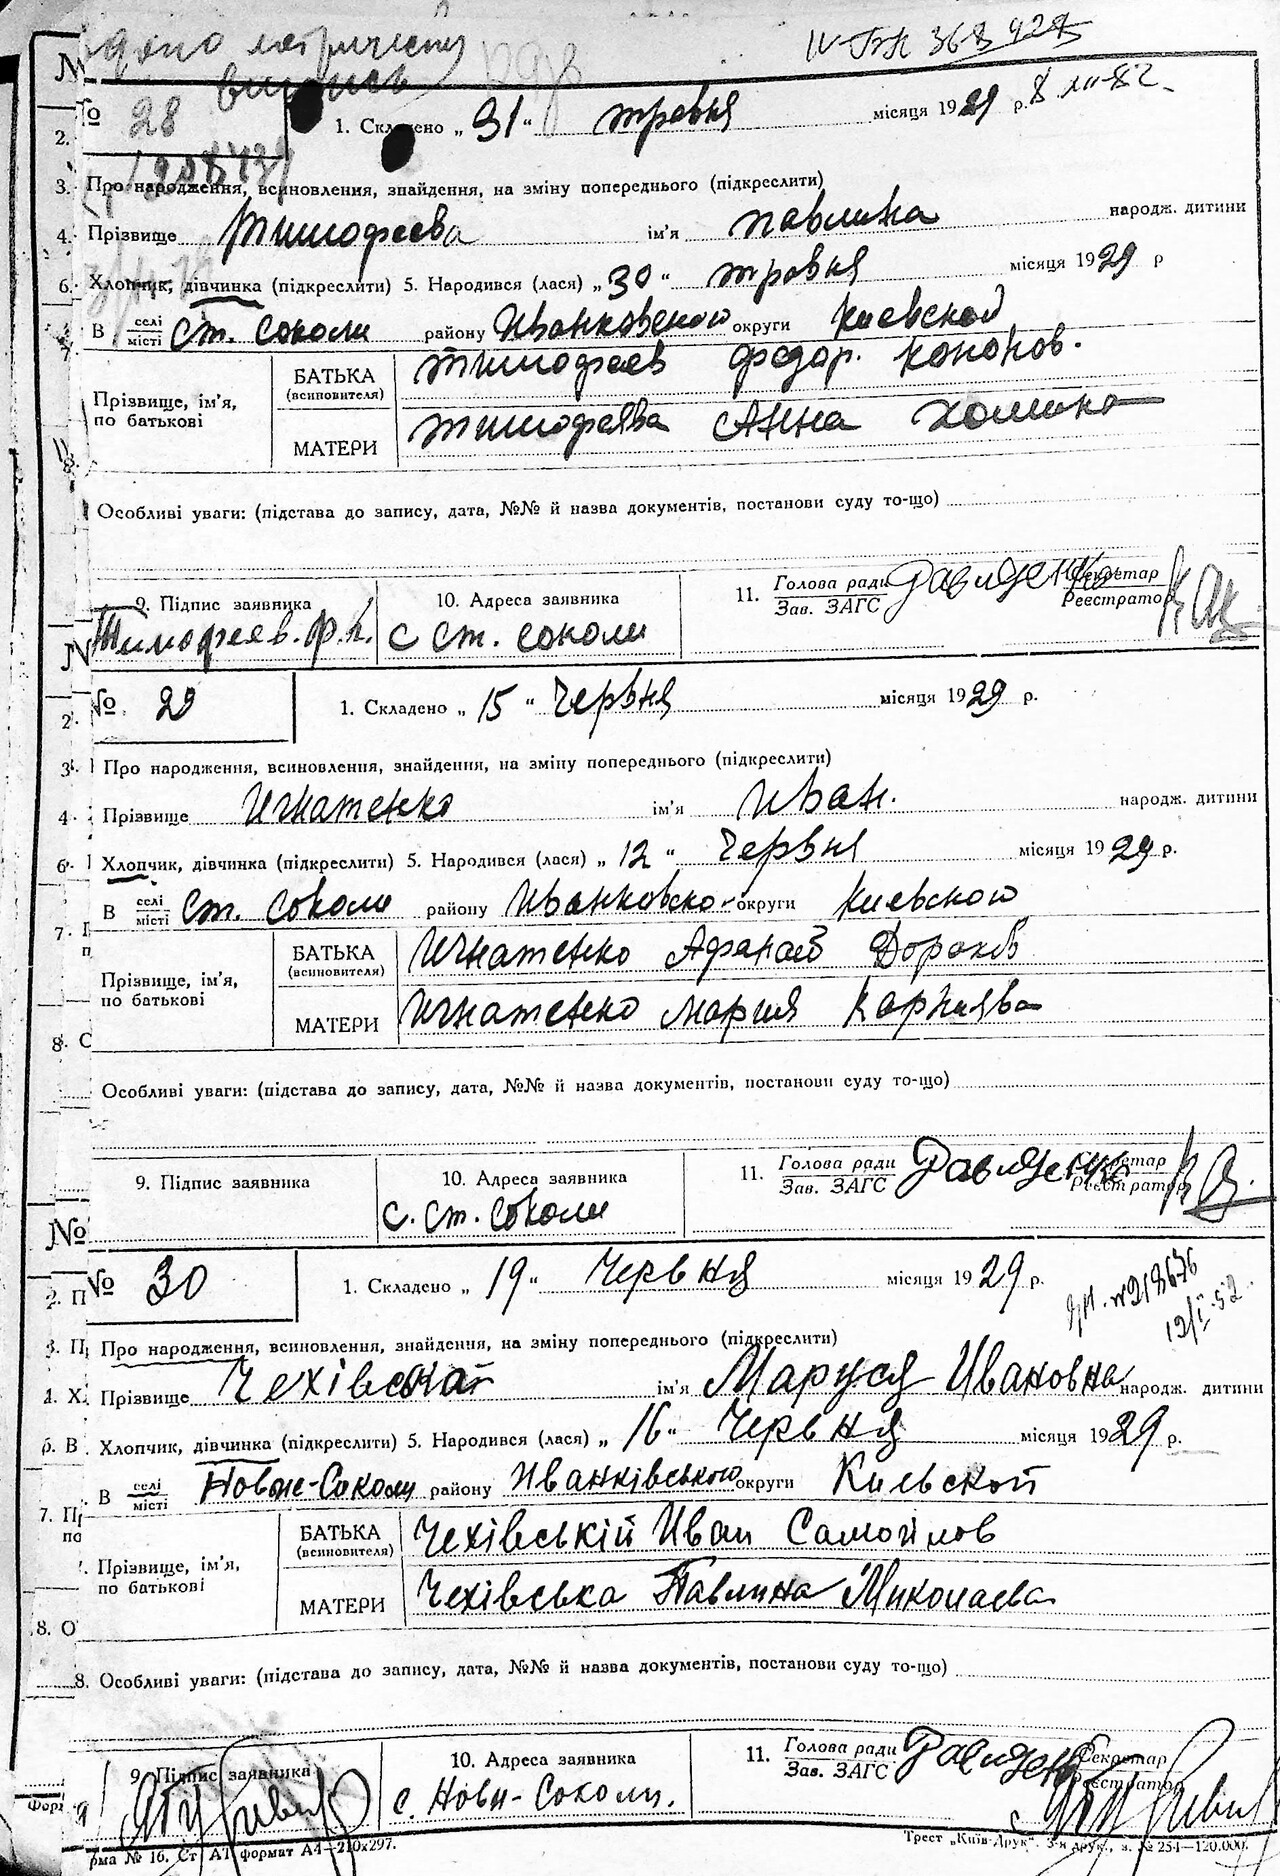 дано метричену
випись
IV-БК 368 428
8 XII-82
№ 28
1. Складено „ 31 “ травня місяця 1929 р.
3. Про народження, всиновлення, знайдення, на зміну попереднього (підкреслити)
4. Прізвище Тимофеева ім’я Павлина народж. дитини
6. Хлопчик, дівчинка (підкреслити) 5. Народився (лася) „ 30 “ травня місяця 1929 р
В селі місті Ст. Соколи району Иванковского округи Киевской
Прізвище, ім’я, по батькові
БАТЬКА (всиновителя) Тимофеев Федор. Кононов.
МАТЕРИ Тимофеева Анна Хомина
Особливі уваги: (підстава до запису, дата, №№ й назва документів, постанови суду то-що)
9. Підпис заявника 10. Адреса заявника 11. Голова ради Зав. ЗАГС Давиденко Секретар Реєстратор
Тимофеев. Ф.К. с Ст. Соколи
№ 29
1. Складено „ 15 “ Червня місяця 1929 р.
Про народження, всиновлення, знайдення, на зміну попереднього (підкреслити)
Прізвище Игнатенко ім’я Иван. народж. дитини
Хлопчик, дівчинка (підкреслити) 5. Народився (лася) „ 12 “ Червня місяця 1929 р.
В селі місті Ст. Соколи району Иванковско- округи Киевского
Прізвище, ім’я, по батькові
БАТЬКА (всиновителя) Игнатенко Афанас
МАТЕРИ Игнатенко Мария
Особливі уваги: (підстава до запису, дата, №№ й назва документів, постанови суду то-що)
9. Підпис заявника 10. Адреса заявника 11. Голова ради Зав. ЗАГС Давиденко Секретар Реєстратор
с. Ст. Соколи
№ 30
1. Складено „ 19 “ Червня місяця 1929 р.
№218676
12/I-52
Про народження, всиновлення, знайдення, на зміну попереднього (підкреслити)
Прізвище Чехівская ім’я Маруся Ивановна народж. дитини
Хлопчик, дівчинка (підкреслити) 5. Народився (лася) „ 16 “ Червня місяця 1929 р.
В селі місті Новые-Соколи району Иванківського округи Киъвской
Прізвище, ім’я, по батькові
БАТЬКА (всиновителя) Чехівській Иван Самойлов
МАТЕРИ Чехівська Павлина Миколаева
8. Особливі уваги: (підстава до запису, дата, №№ й назва документів, постанови суду то-що)
9. Підпис заявника 10. Адреса заявника 11. Голова ради Зав. ЗАГС Давиденко Секретар Реєстратор
с. Нови-Соколи.
рма № 16. Ст. А1 формат А4—210x297.
Трест „Київ-Друк“. 3-я друк., з. № 251—120.000.